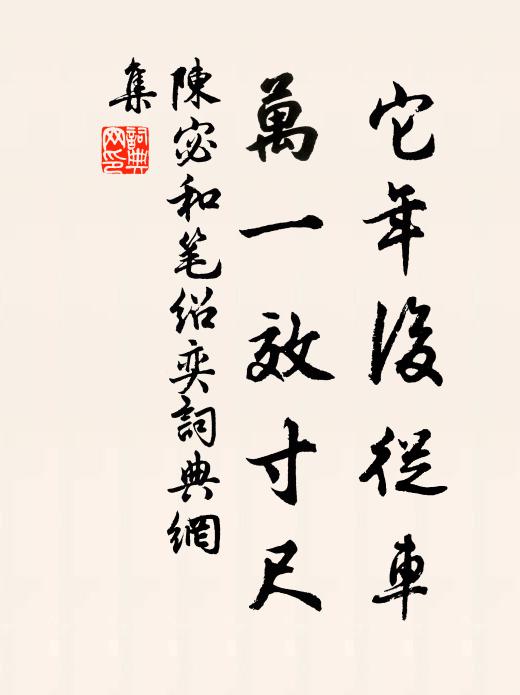 它年後從車
萬一效寸尺
陳宓和笔绍奕詞典網
集
詞典
网印